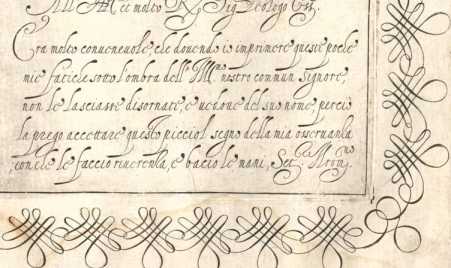 et molto R.
Era molto conueneuole, che douendo io imprimere queste poche
mie fatiche sotto l'ombra dell' Ill.mo nostro commun Signore,
non le lasciasse disornate, e del suo nome perciò
la prego accettare questo picciol segno della mia osseruanza
con che le faccio riuerenza, e bacio le mani,